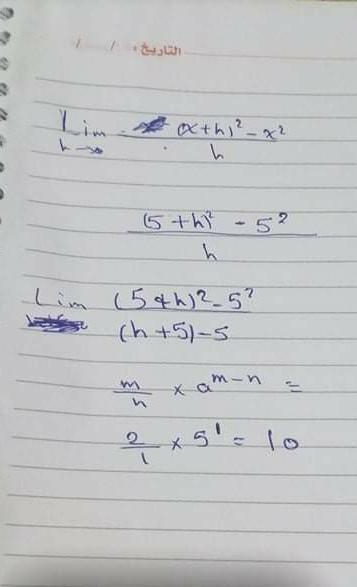 التاريخ: / /
Lim (x+h)² - x²
h→∞ h
(5+h)² - 5²
h
Lim (5+h)² - 5²
(h+5)-5
m/n × a^m-n =
2/1 × 5¹ = 10